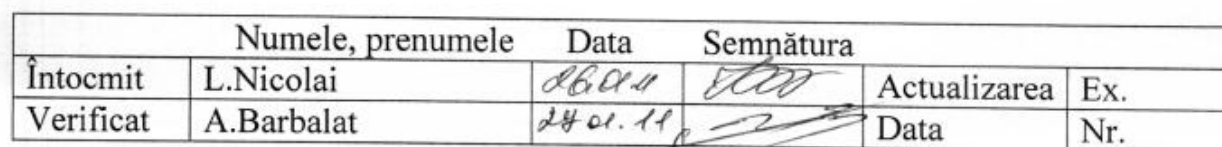 Numele, prenumele Data Semnătura
Întocmit L.Nicolai 26.01.11 Actualizarea Ex.
Verificat A.Barbalat 27 01.11 Data Nr.